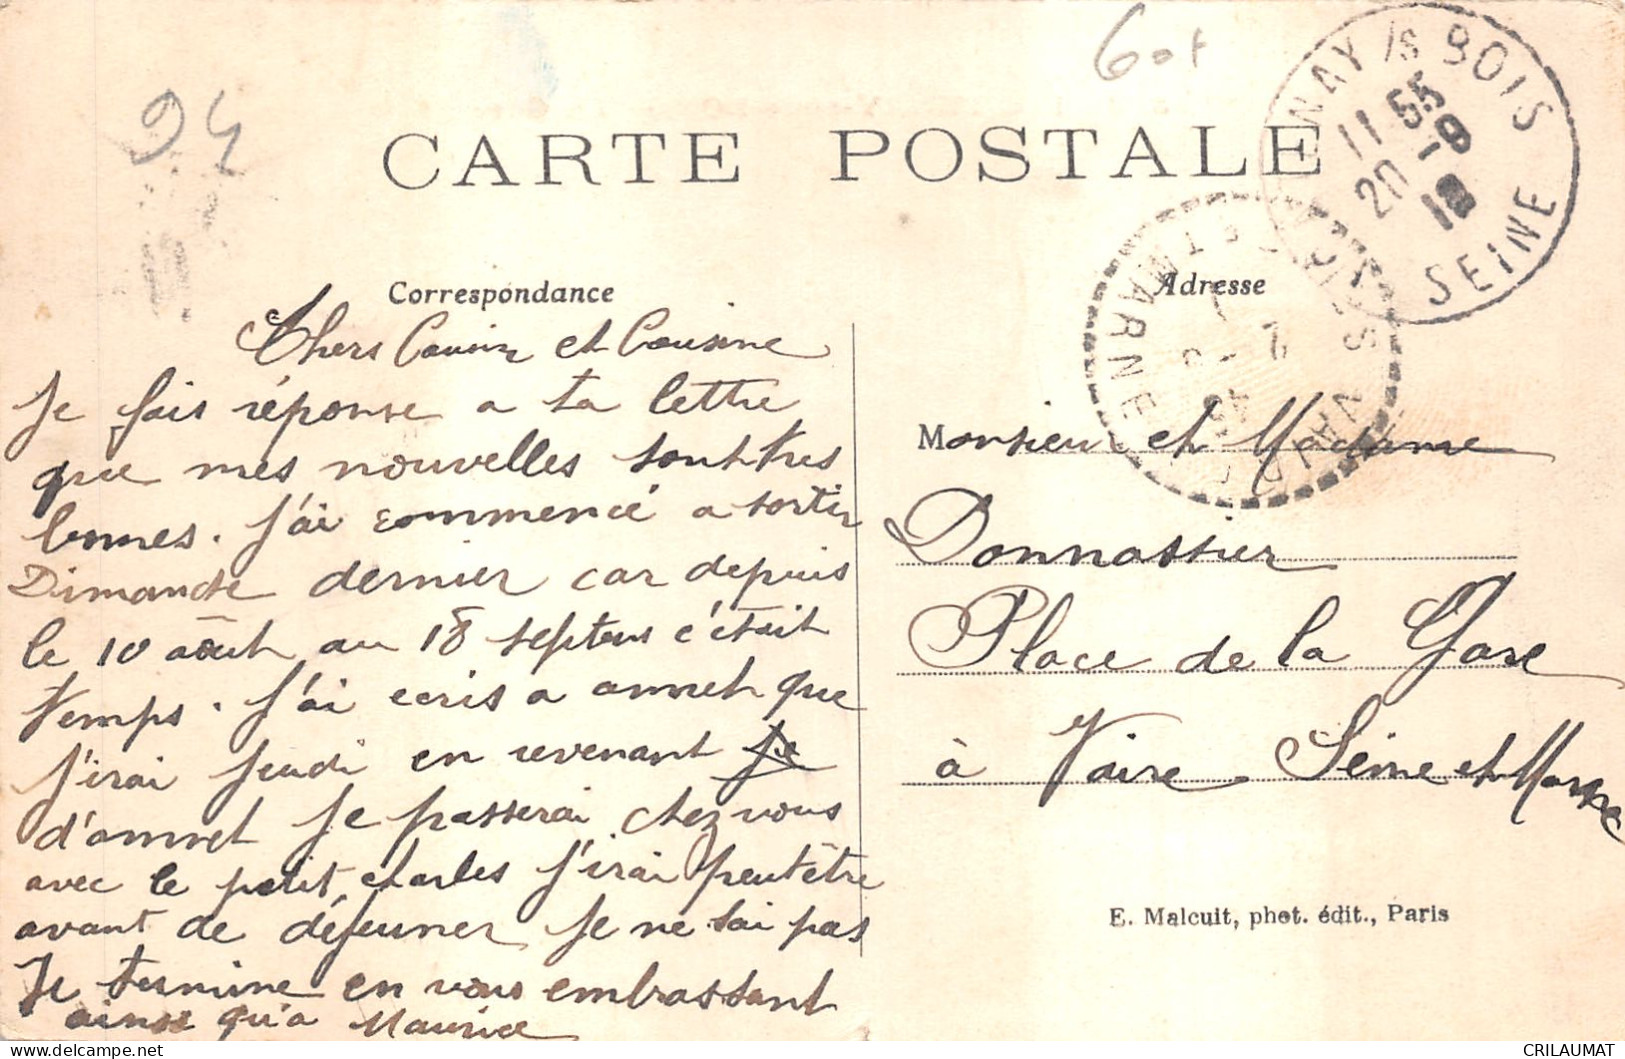 94
60t
CARTE POSTALE
NAY /s BOIS
11 55
20 -9
SEINE
Correspondance
Adresse
Chers Cousin et Cousine
Je fais réponse a ta lettre
que mes nouvelles sont très
bonnes. J'ai commencé a sortir
Dimanche dernier car depuis
le 10 août au 18 septem c'était
temps. J'ai ecris a annet que
J'irai Jeudi en revenant Je
d'annet Je passerai chez vous
avec le petit charles J'irai peut être
avant de déjeuner Je ne sai pas
Je termine en vous embrassant
ainsi qu'a Maurice
Monsieur et Madame
Donnassier
Place de la Gare
à Vaire. Seine et Marne
ET MARNE
E. Malcuit, phot. édit., Paris
CRILAUMAT